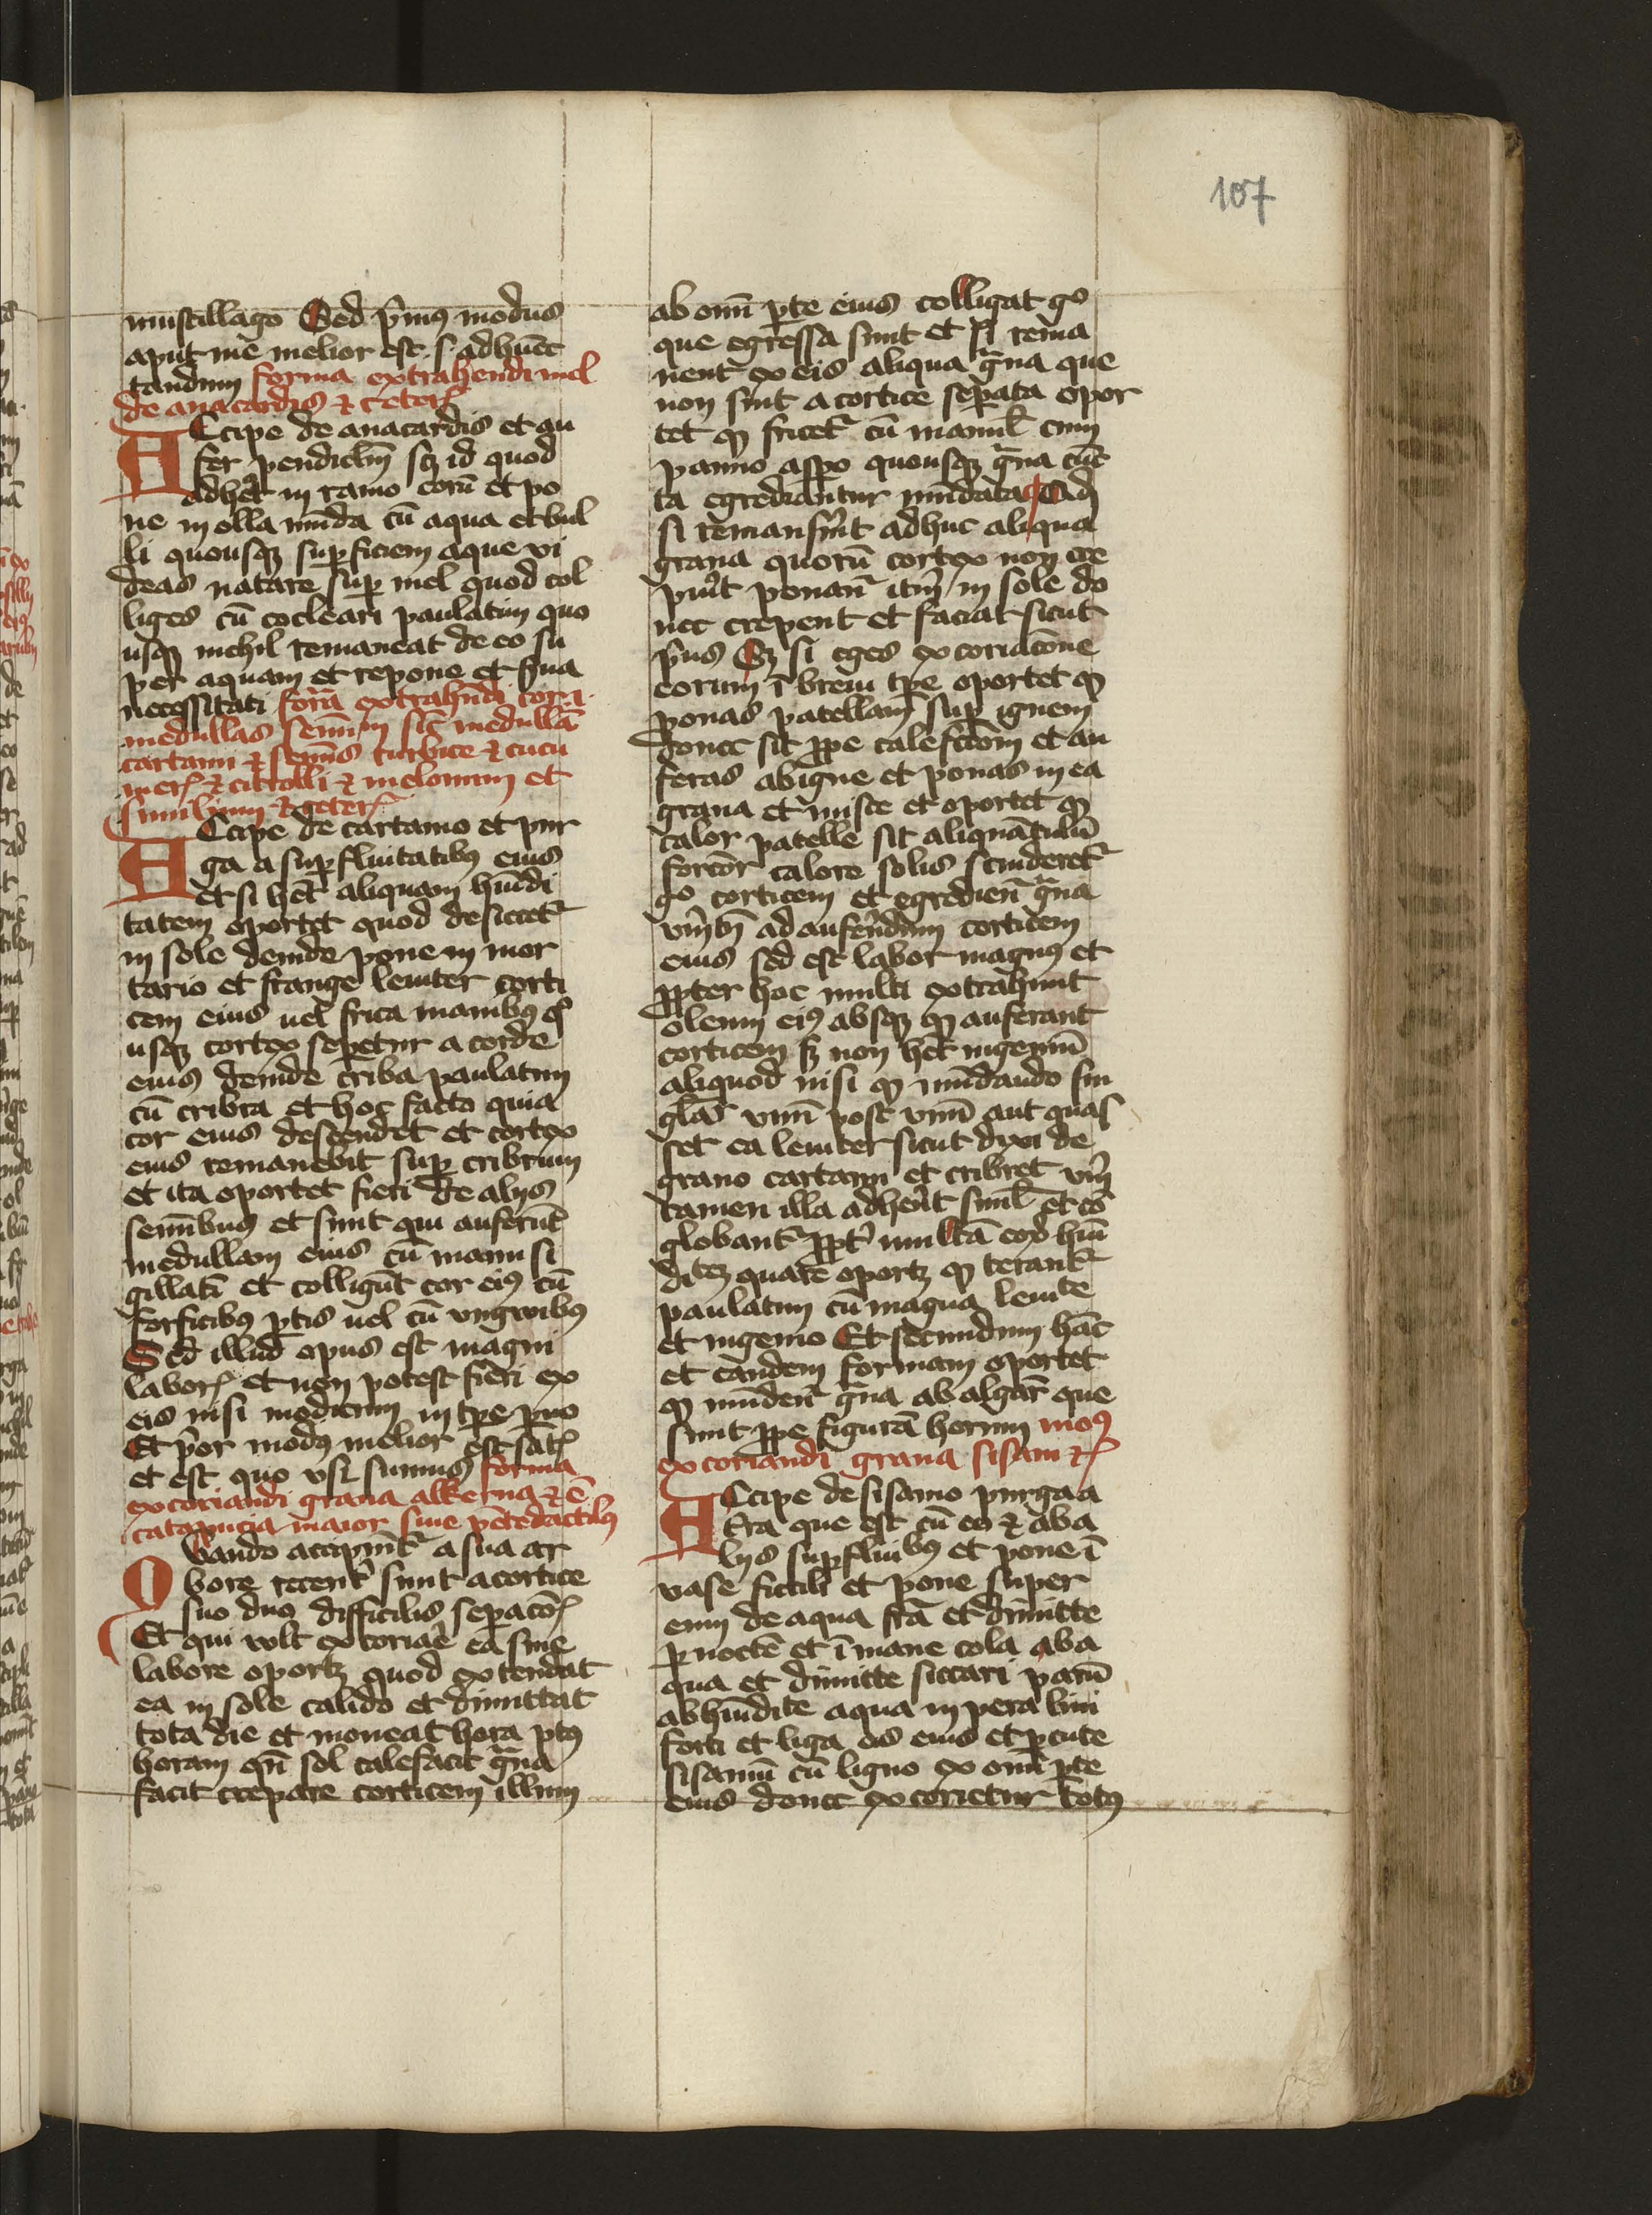 107
muscillago Sed p̄mus modus
aput me melior est .s. adhuc
tandum forma extrahendi mel
de anacardis ⁊ ceter̄
Accipe de anacardis et au
fer pendiclm̄ sꝫ id quod
adhēt in ramo eorū et po
ne in olla mūda cū aqua et bul
li quousqꝫ suꝑficiem aque vi
deas natare suꝑ mel quod col
liges cū cocleari paulatim quo
usqꝫ nichil remaneat de eo su
per aquam et repone et s̄ua
necessitati forā extrahn̄di cor .i.
medullas semīum sic̄ medullā
cartami ⁊ semīs curbice ⁊ cucu
mer̄ ⁊ citrolli ⁊ melonum et
similium ⁊ ceter̄
Accipe de cartamo et pur
ga a suꝑfluitatibꝰ eius
et si hēt aliquam hūidi
tatem oportet quod desiccet᷑
in sole deinde pone in mor
tario et frange leniter corti
cem eius uel frica manibꝰ qͦ
usqꝫ cortex seꝑetur a corde
eius deinde criba paulatim
cū cribra et hoc facto quia
cor eius descendet et cortex
eius remanebit suꝑ cribrum
et ita oportet fieri de alijs
semībus et sunt qui auferūt
medullam eius cū manu si
gillatī et colligūt cor eiꝰ cū
forficibꝰ ꝑuis uel cū vnguibꝰ
Sed illud opus est magni
labor̄ et non potest fieri ex
eis nisi modicum in tꝑe ꝑuo
Et p̄or modꝰ melior est
et est quo vsi sumus forma
excoriandi grana alkerua ⁊ ē
catapucia maior siue pētedactilꝰ
Quando accipiūt᷑ a sua ar
bore recent᷑ sunt a cortice
suo duo difficilis seꝑacōē
Et qui vult excoriaē ea sine
labore oportꝫ quod extendat
ea in sole calido et dimittat
tota die et moueat hora pꝰ
horam qn̄ sol calefacit ḡna
facit crepare corticem illum
ab omī ꝑte eius colligat gͦ
que egressa sunt et si rema
nent ex eis aliqua ḡna que
non sint a cortice seꝑata opor
tet ꝙ fricet᷑ cū manuꝰ cum
panno asꝑo quousqꝫ ḡna cūc
ta egrediantur mūdata Qd̄
si remansīt adhuc aliqua
grana quorū cortex non cre
puit ponan᷑ itm̄ in sole do
nec crepent et faciat sicut
p̄us Sꝫ si eges excoriacōne
eorum ī breui tꝑe oportet ꝙ
ponas patellam suꝑ ignem
donec sit ꝓpe calefctōm et au
feras ab igne et ponas in ea
grana et misce et oportet ꝙ
calor patelle sit aliquātulū
forcior calore solis scinderet᷑
gͦ corticem et egredien᷑ ḡna
ad auferēdum corticem
eius sed est labor magnꝰ et
ꝓpter hoc multi extrahunt
oleum eiꝰ absqꝫ ꝙ auferant
corticem sꝫ non hēt ingeniū
aliquod nisi ꝙ mūdando sin
glār vnū post vnū aut quas
set ea leniter sicut dixi de
grano cartami et cribret
tamen illa adherēt siml̄ et cō
globant᷑ ꝓpt᷑ multā eoꝝ hūi
ditꝫ quare oportꝫ ꝙ terant᷑
paulatim cū magna lenite
et ingenio Et secundum hāc
et eandem formam oportet
ꝙ mūden᷑ ḡna ab algar̄ que
sunt ꝓpe figurā horum moꝰ
excoriandi grana sisam ⁊c̄
Accipe de sisamo purga a
terra que est cū eo ⁊ ab a
lijs suꝑfluibꝰ et pone ī
vase fictili et pone super
eum de aqua frā et dimitte
ꝑ noctē et ī mane cola ab a
qua et dimitte siccari parū
ab hūidite aqua in pera lini
forti et liga os eius et ꝑcute
sisamū cū ligno ex omī ꝑte
eius donec excorietur totꝰ